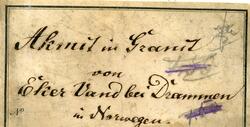 Akmit in Granit
von
Eker Vand bei Drammen
in Norwegen.
No